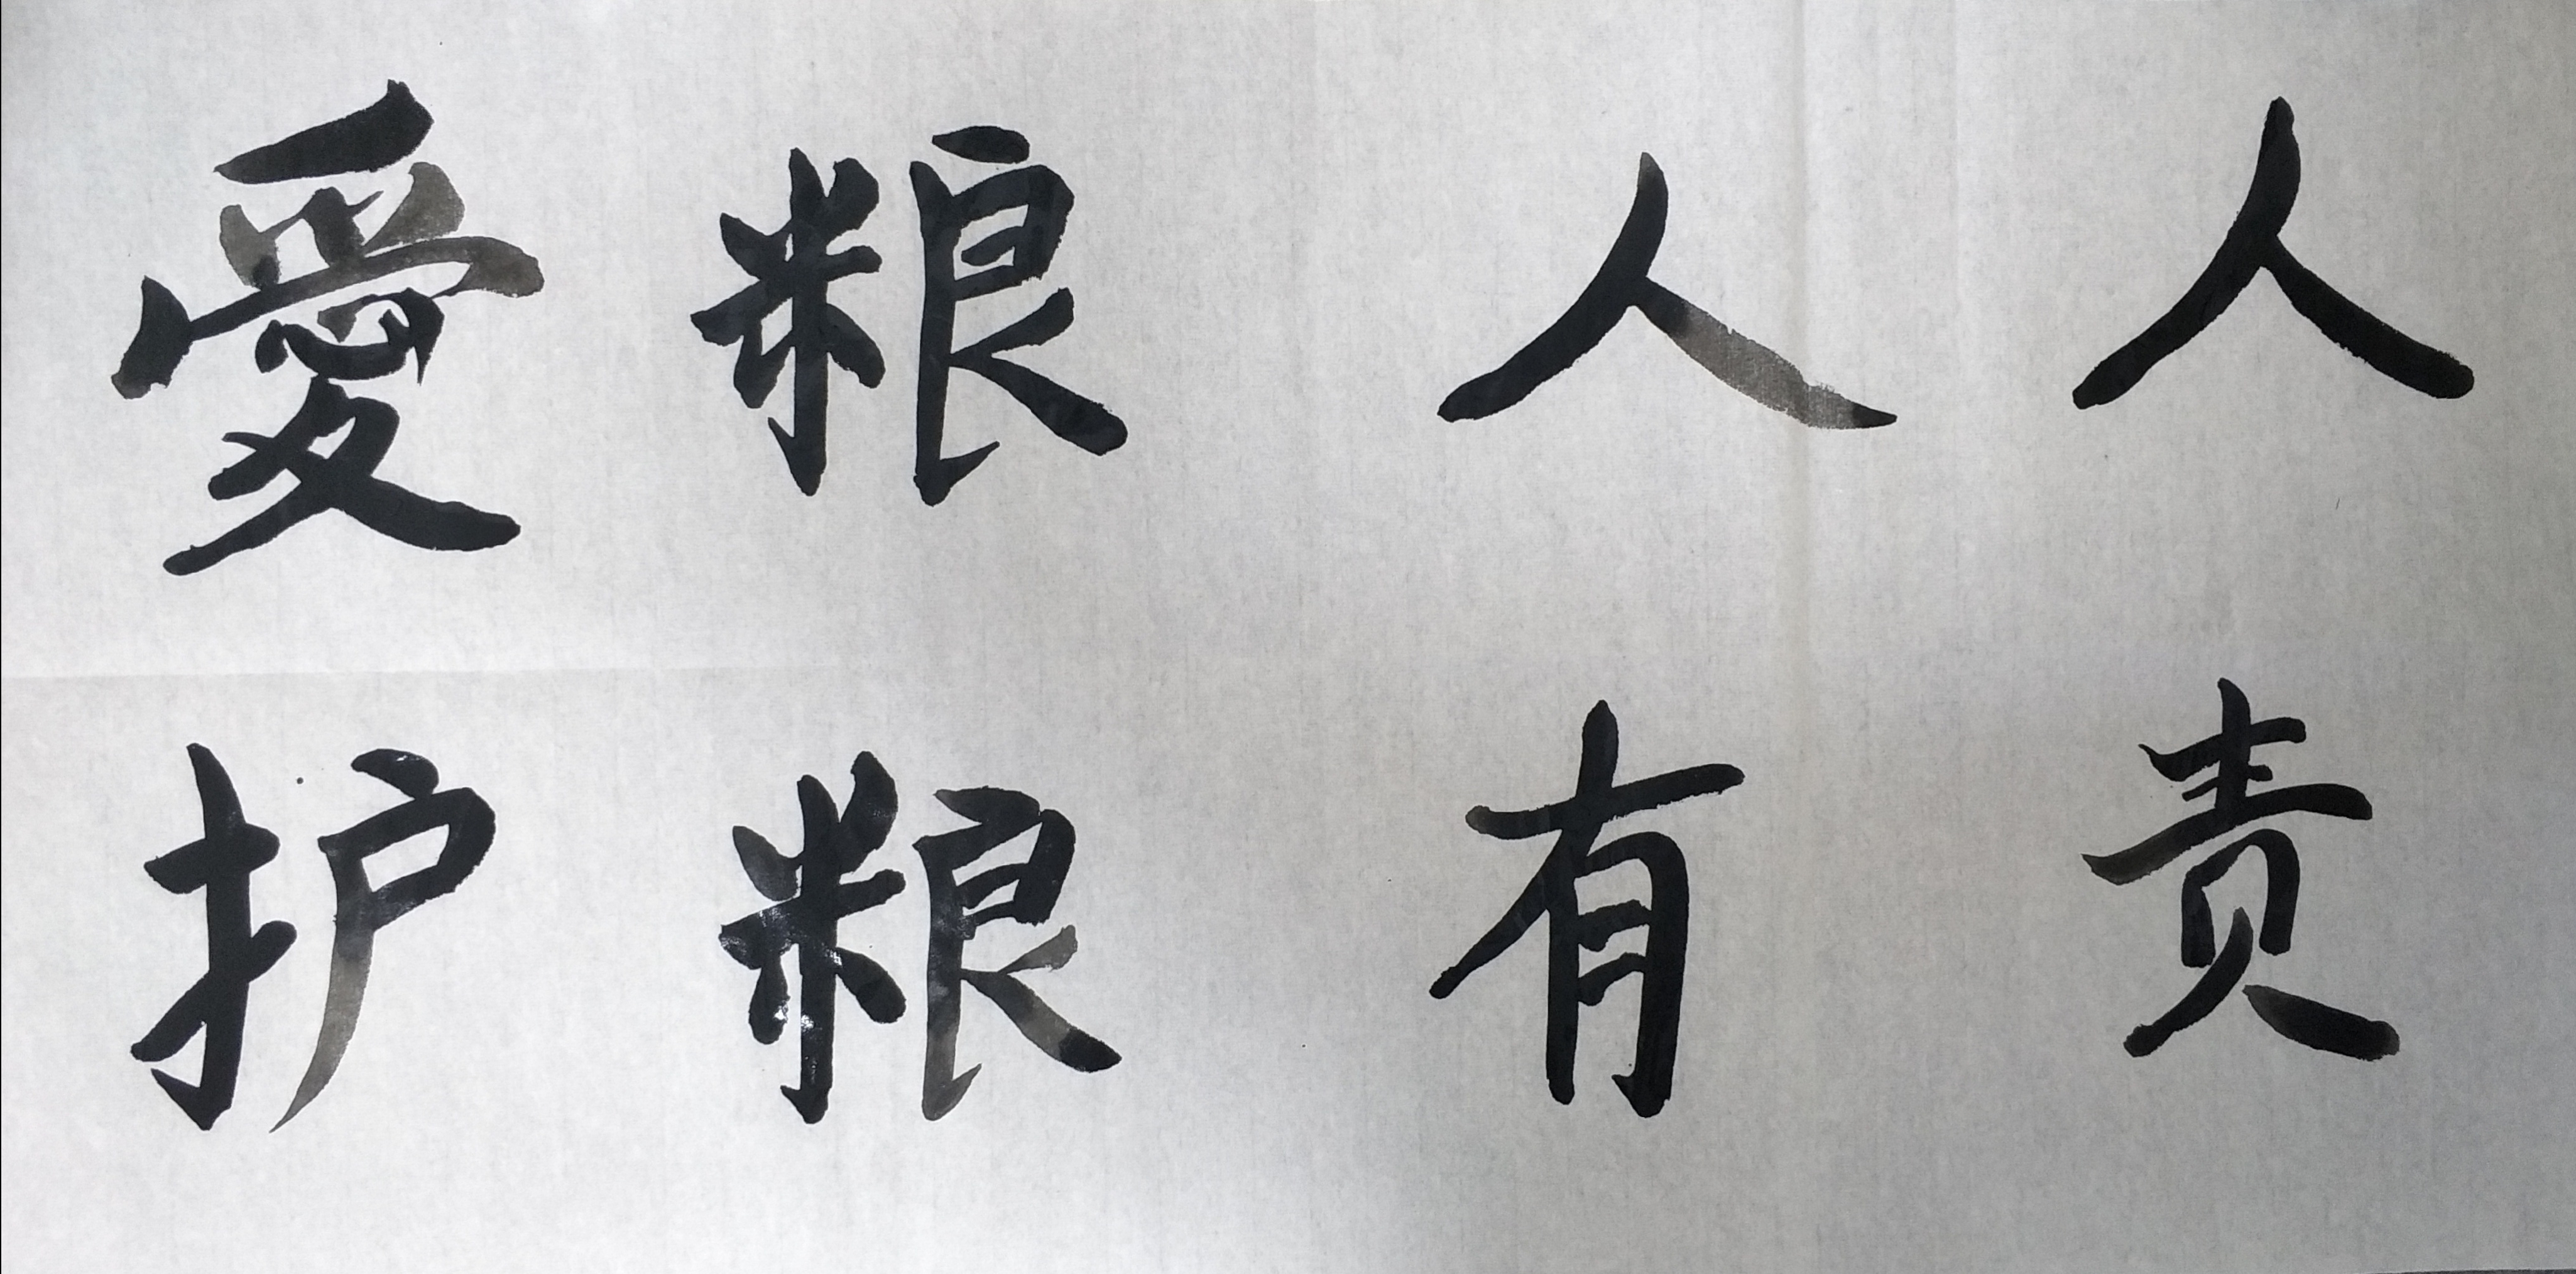 愛粮
护粮
人人
有责